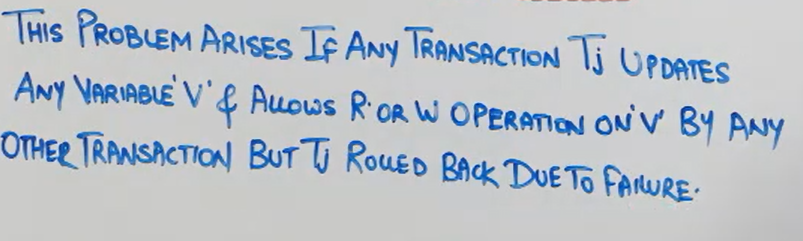 THIS PROBLEM ARISES IF ANY TRANSACTION Tj UPDATES
ANY VARIABLE 'V' & ALLOWS R OR W OPERATION ON 'V' BY ANY
OTHER TRANSACTION BUT Tj ROLLED BACK DUE TO FAILURE.